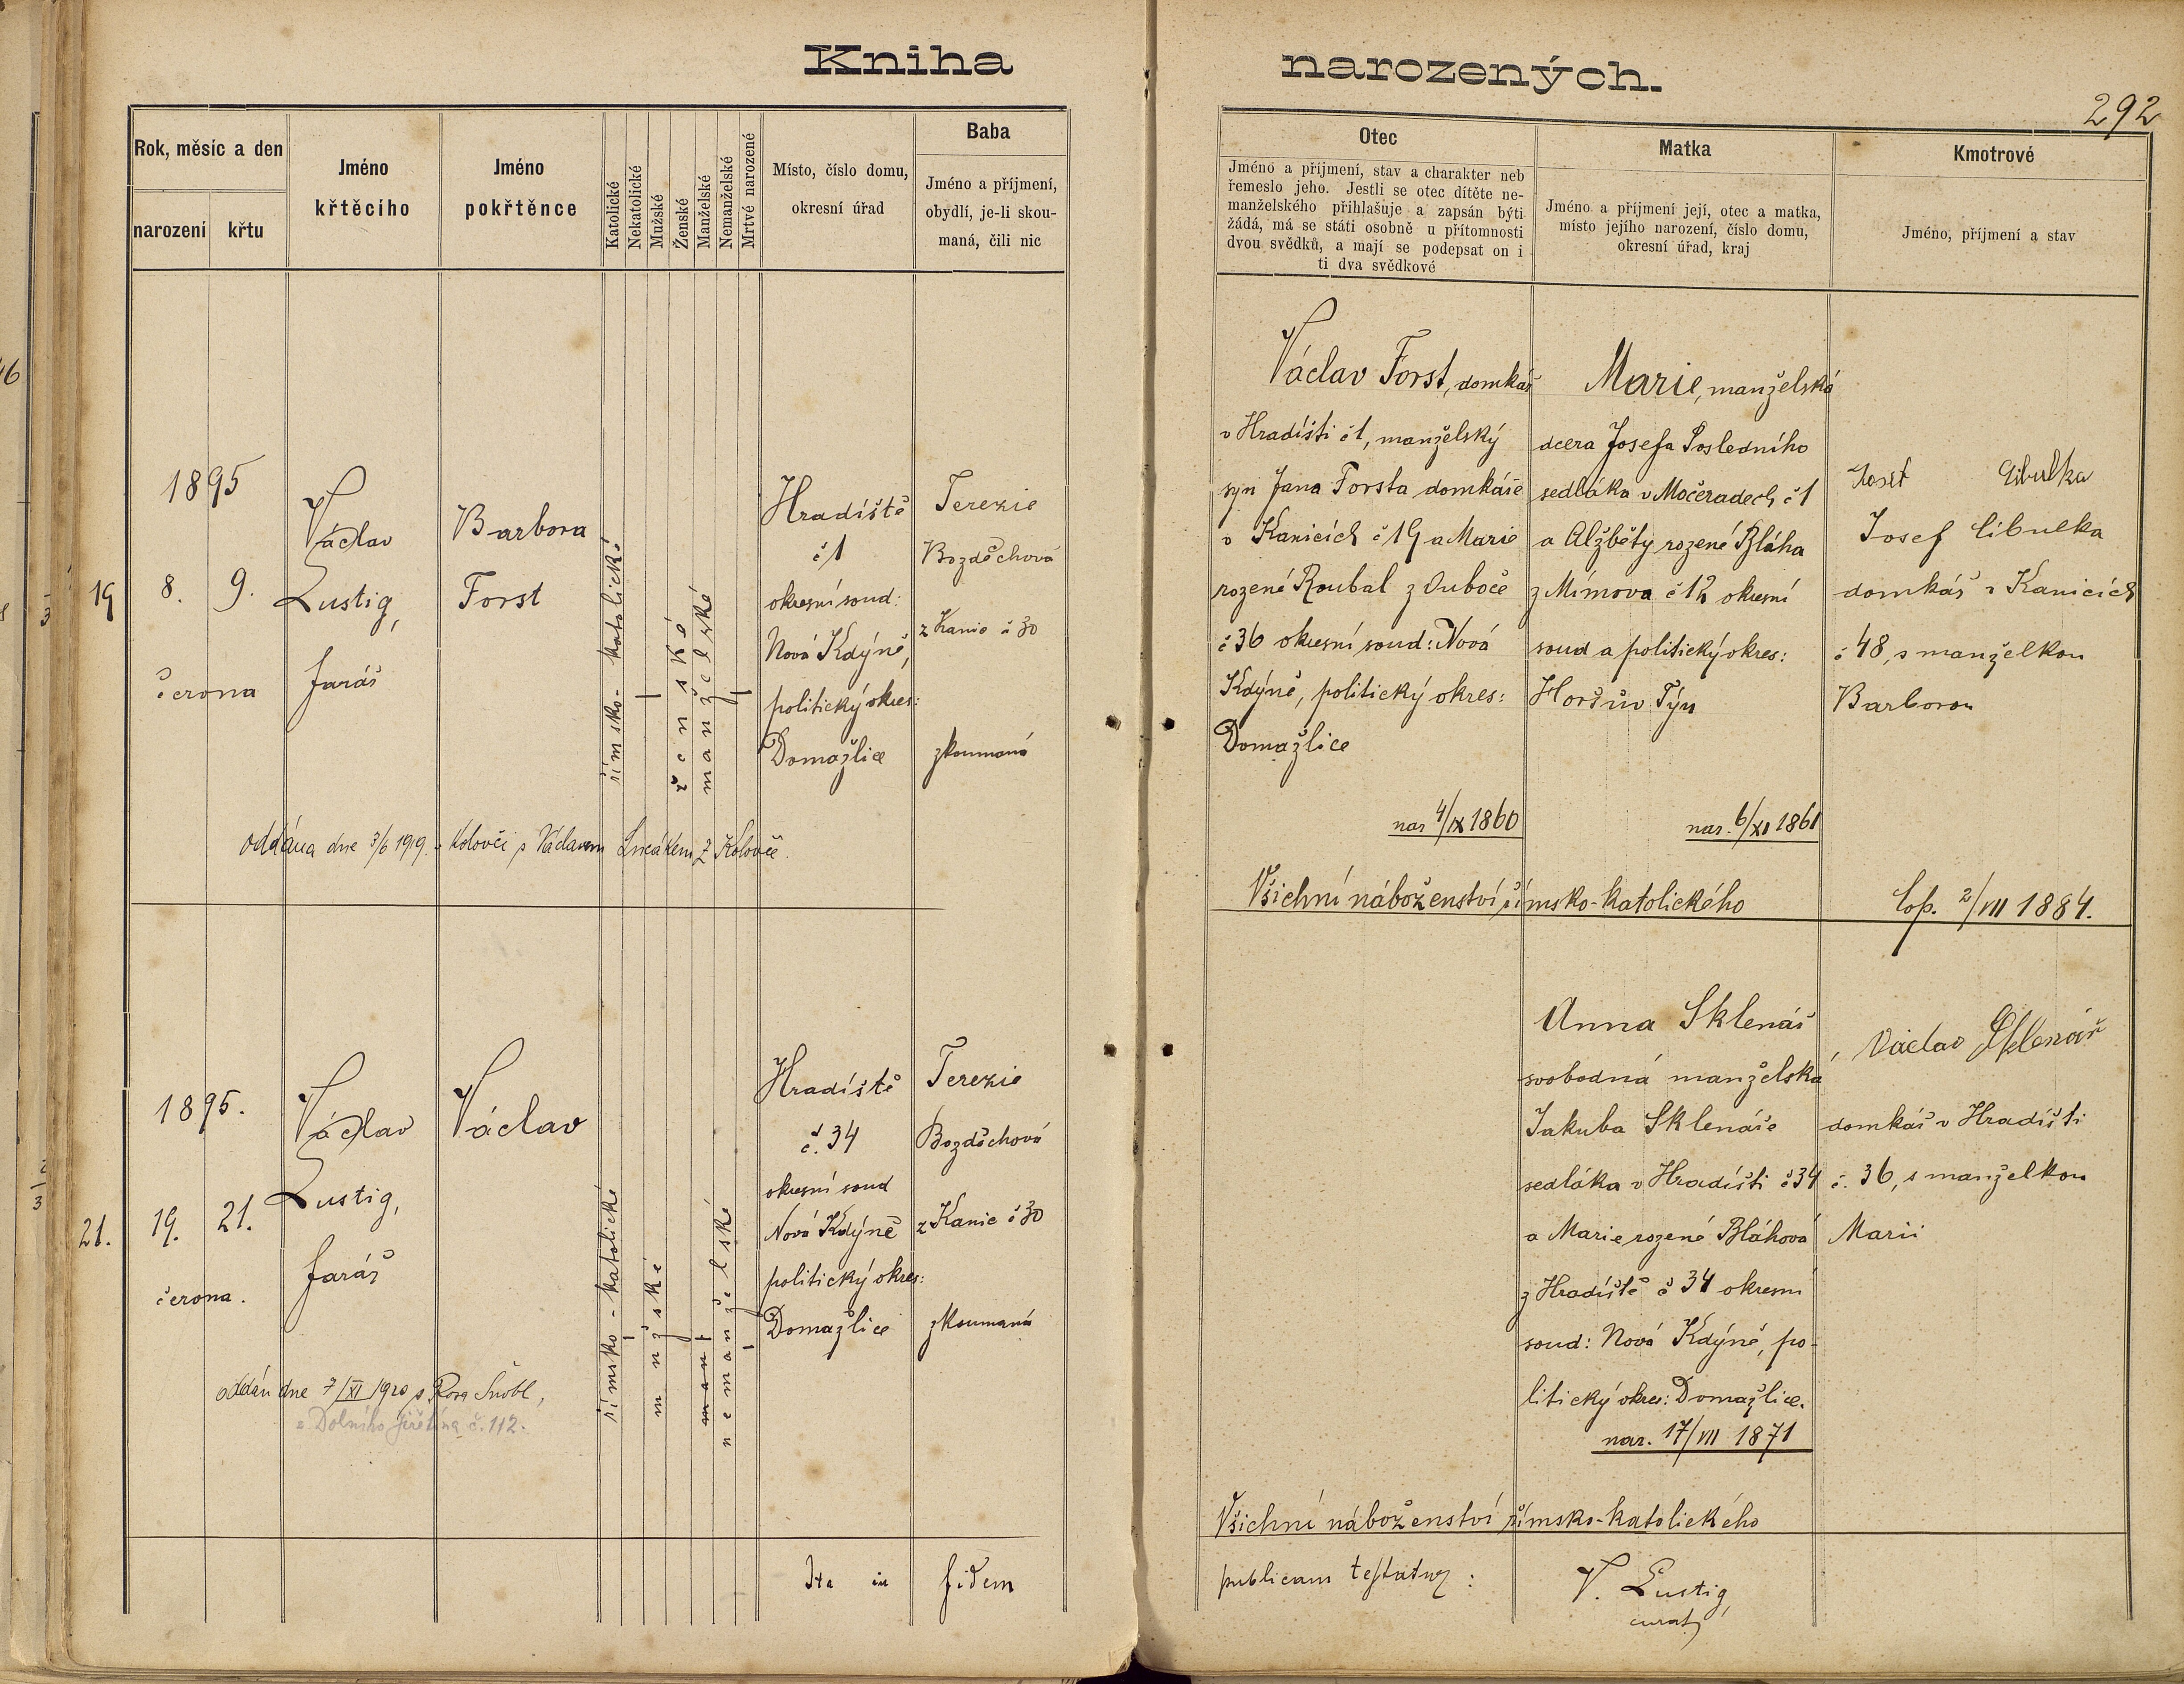 Kniha narozených.
292
Rok, měsíc a den
narození
křtu
Jméno
křtěcího
Jméno
pokřtěnce
Katolické
Nekatolické
Mužské
Ženské
Manželské
Nemanželské
Mrtvé narozené
Místo, číslo domu,
okresní úřad
Baba
Jméno a příjmení,
obydlí, je-li skou-
maná, čili nic
Otec
Jméno a příjmení, stav a charakter neb
řemeslo jeho. Jestli se otec dítěte ne-
manželského přihlašuje a zapsán býti
žádá, má se státi osobně u přítomnosti
dvou svědků, a mají se podepsat on i
ti dva svědkové
Matka
Jméno a příjmení její, otec a matka,
místo jejího narození, číslo domu,
okresní úřad, kraj
Kmotrové
Jméno, příjmení a stav
19
1895
8. 9.
června
Václav
Lustig,
farář
Barbora
Forst
římsko-katolické
ženské
manželské
Hradiště
č 1
okresní soud:
Nová Kdýně,
politický okres:
Domažlice
Terezie
Bozděchová
z Kanic č 30
zkoumaná
oddána dne 3/6 1919 v Kolovči s Václavem z Kolovče.
Václav Forst, domkář
v Hradišti č 1, manželský
syn Jana Forsta domkáře
v Kanicích č 19 a Marie
rozené Roubal z Ouboče
č 36 okresní soud: Nová
Kdýně, politický okres:
Domažlice
nar 4/IX 1860
Marie, manželská
dcera Josefa Posledního
sedláka v Močeradech č 1
a Alžběty rozené Bláha
z Mímova č 12 okresní
soud a politický okres:
Horšův Týn
nar. 6/XI 1861
Josef Cibulka
Josef Cibulka
domkář v Kanicích
č 48, s manželkou
Barborou
Všichni náboženství římsko-katolického
Cop. 2/VII 1884.
21.
1895.
19. 21.
června.
Václav
Lustig,
farář
Václav
římsko-katolické
mužské
man
nemanželské
Hradiště
č. 34
okresní soud
Nová Kdýně
politický okres:
Domažlice
Terezie
Bozděchová
z Kanic č 30
zkoumaná
oddán dne 7/XI 1920 s Rosa Šnobl,
z Dolního Jiřetína č. 112.
Anna Sklenář
svobodná manželská
Jakuba Sklenáře
sedláka v Hradišti č 34
a Marie rozené Bláhová
z Hradiště č 34 okresní
soud: Nová Kdýně, po-
litický okres: Domažlice.
nar. 17/VII 1871
Václav Sklenář
domkář v Hradišti
č. 36, s manželkou
Marii
Všichni náboženství římsko-katolického
Ita in fidem
publicam testatur:
V. Lustig,
curat